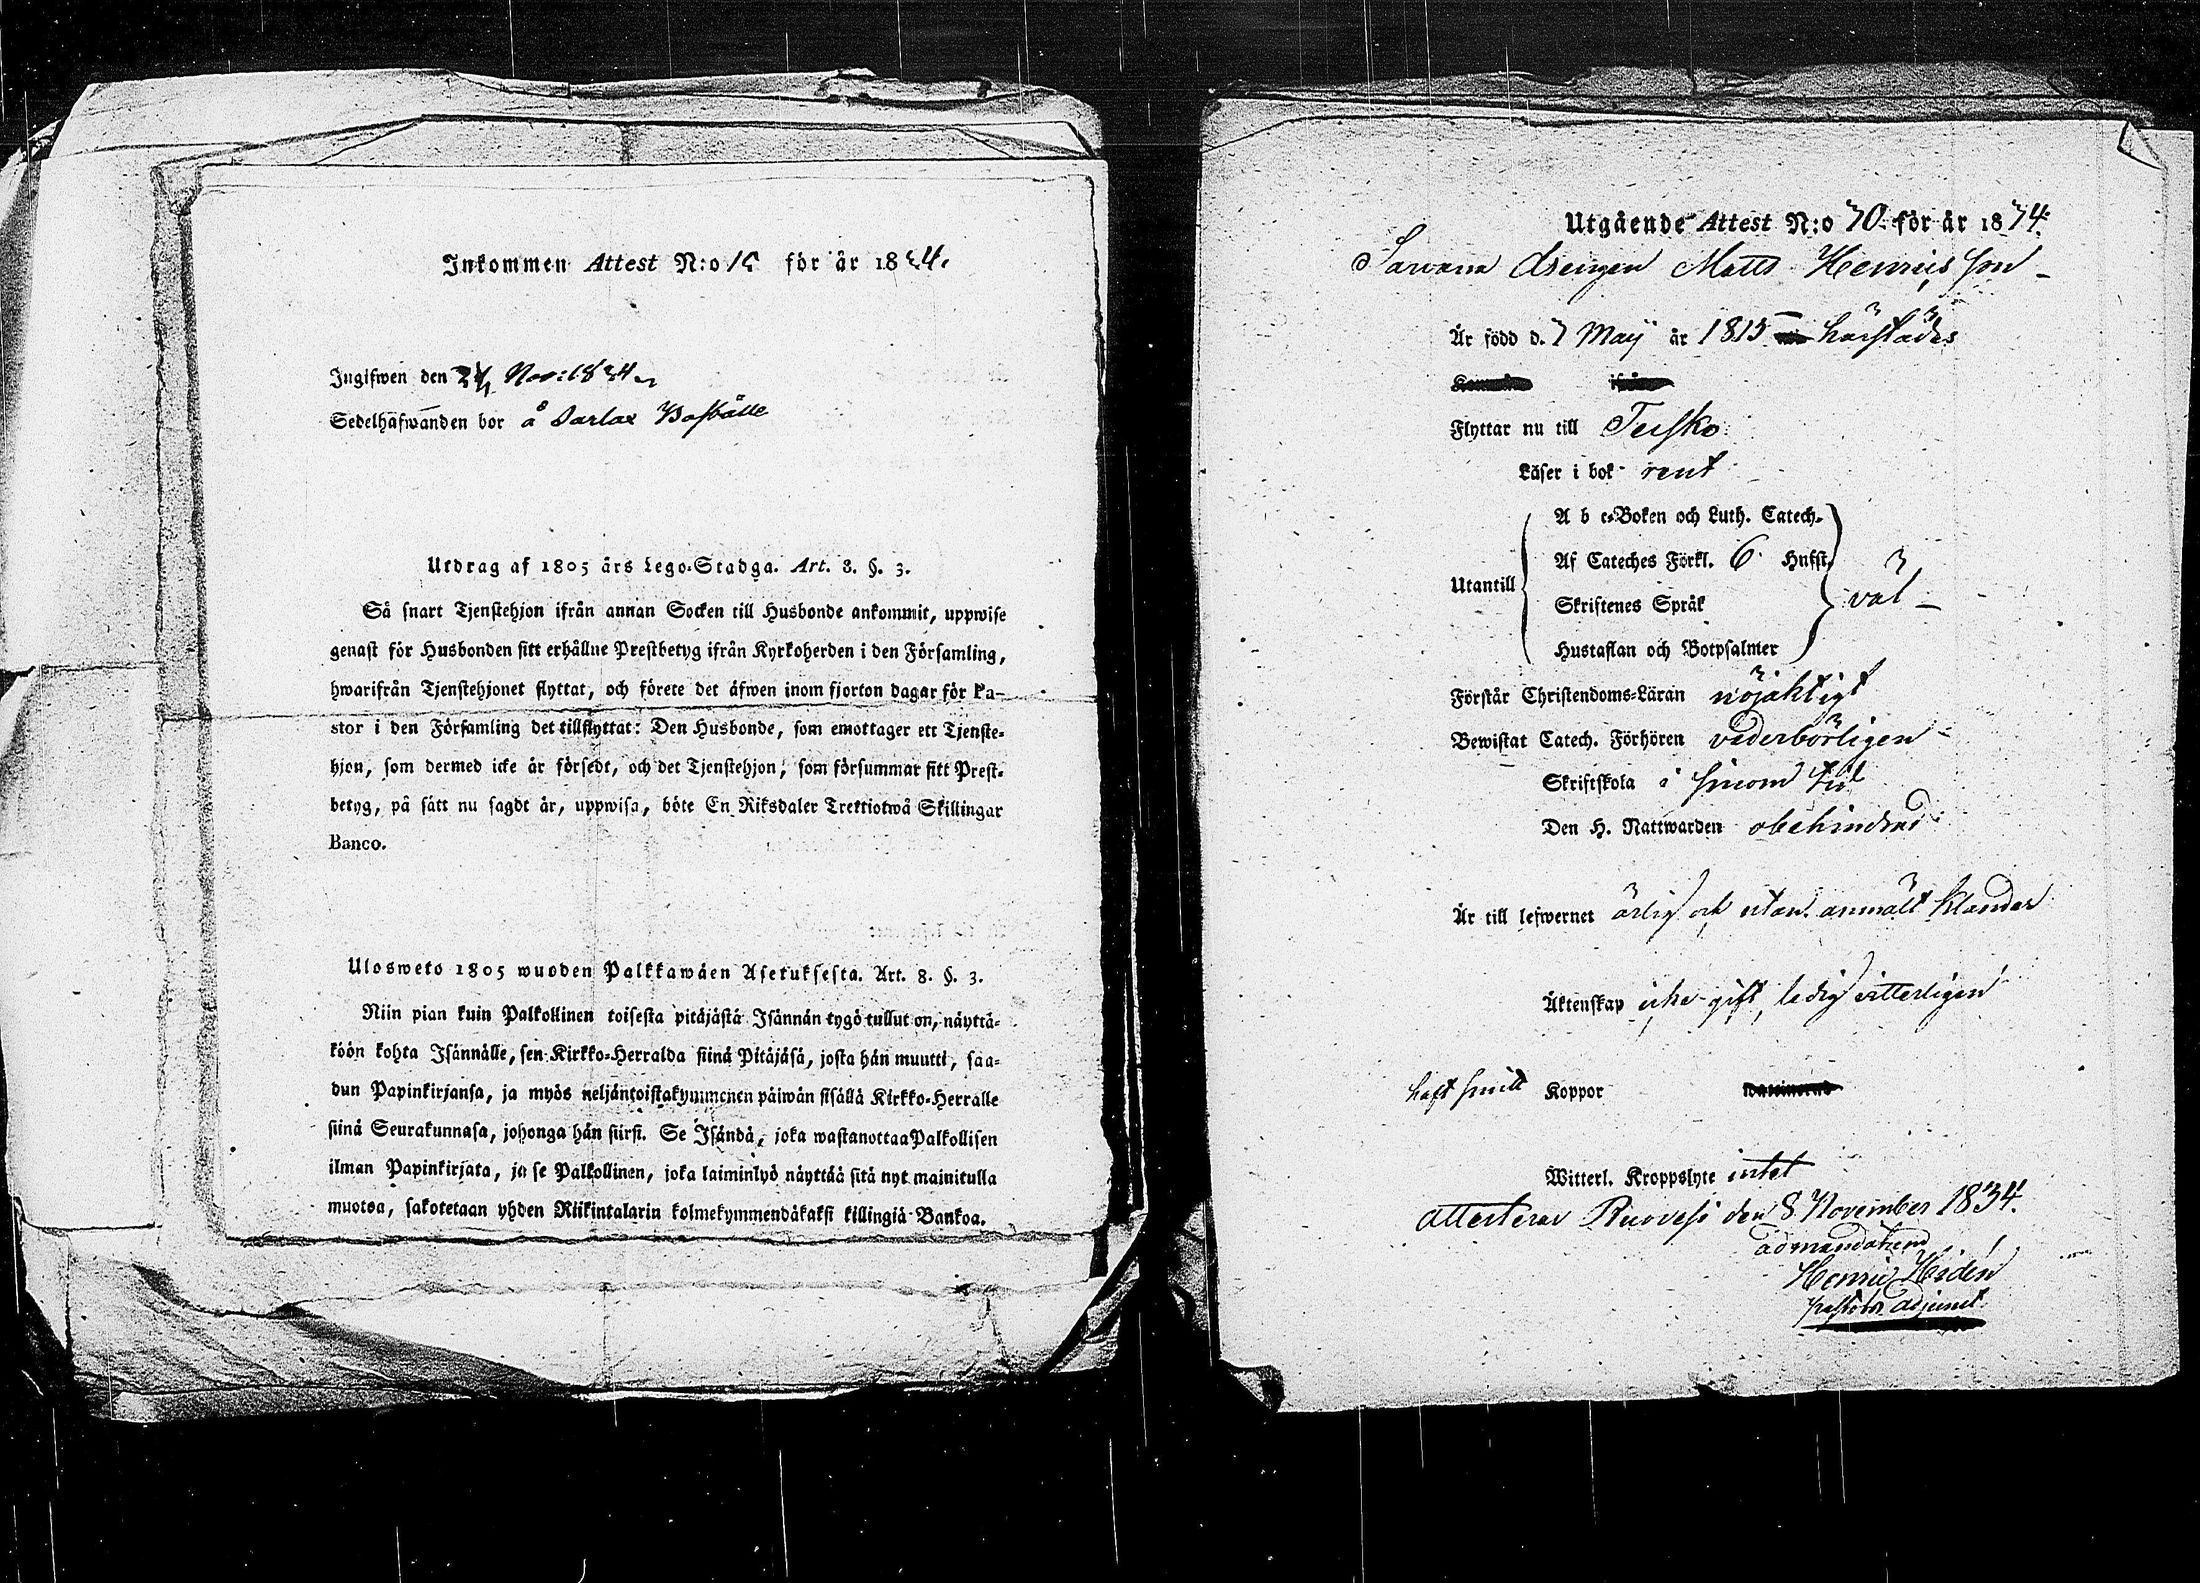 Inkommen Attest N:o 15 för år 1834.
Ingifwen den 24 Nov: 1834
Sedelhafwanden bor å Sarlax Boställe
Utdrag af 1805 års Lego-Stadga. Art. 8. §. 3.
Så snart Tjenstehjon ifrån annan Socken till Husbonde ankommit, uppwise
genast för Husbonden sitt erhållne Prestbetyg ifrån Kyrkoherden i den Församling,
hwarifrån Tjenstehjonet flyttat, och förete det äfwen inom fjorton dagar för Pa-
stor i den Församling det tillflyttat: Den Husbonde, som emottager ett Tjenste-
hjon, som dermed icke är försedt, och det Tjenstehjon, som försummar sitt Prest-
betyg, på sätt nu sagdt är, uppwisa, böte En Riksdaler Trettiotwå Skillingar
Banco.
Ulosweto 1805 wuoden Palkkawäen Asetuksesta. Art. 8. §. 3.
Niin pian kuin Palkollinen toisesta pitäjästä Isännän tygö tullut on, näyttä-
köön kohta Isännälle, sen Kirkko-Herralda siinä Pitäjäsä, josta hän muutti, saa-
dun Papinkirjansa, ja myös neljäntoistakymmenen päiwän sisällä Kirkko-Herralle
siinä Seurakunnasa, johonga hän siirsi. Se Isändä, joka wastanottaa Palkollisen
ilman Papinkirjata, ja se Palkollinen, joka laiminlyö näyttää sitä nyt mainitulla
muotoa, sakotetaan yhden Riikintalarin kolmekymmendäkaksi killingiä Bankoa.
Utgående Attest N:o 70 för år 1834.
Drengen Matts Henricsson
Är född d. 7 Maij år 1815 härstädes
Flyttar nu till Teisko
Läser i bok rent
A b c-Boken och Luth. Catech.
Af Cateches Förkl. 6 Hufst.
Utantill väl
Skriftenes Språk
Hustaflan och Botpsalmer
Förstår Christendoms-Läran nöjaktigt
Bewistat Catech. Förhören vederbörligen
Skriftskola i sinom tid
Den H. Nattwarden obehindrad
Är till lefwernet ärlig och utan anmält klander
Äktenskap icke gift, ledig vitterligen
haft smitt Koppor
Witterl. Kroppslyte intet
Attesterar Ruovesi den 8 November 1834.
ad mandatum
Henric Hidén
pastors adjunct.